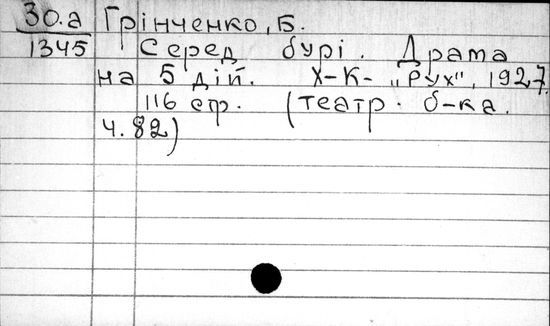 30.а Грінченко, Б.
1345 Серед бурі. Драма
на 5 дій. Х-К- „Рух", 1927.
116 стр. (театр. б-ка.
ч. 82)